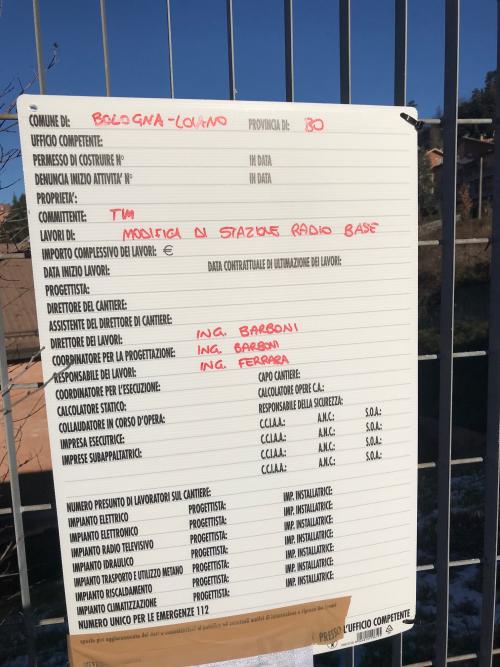 COMUNE DI: BOLOGNA-LOIANO PROVINCIA DI: BO
UFFICIO COMPETENTE:
PERMESSO DI COSTRUIRE N° IN DATA
DENUNCIA INIZIO ATTIVITA' N° IN DATA
PROPRIETA':
COMMITTENTE: TIM
LAVORI DI: MODIFICA DI STAZIONE RADIO BASE
IMPORTO COMPLESSIVO DEI LAVORI: €
DATA INIZIO LAVORI: DATA CONTRATTUALE DI ULTIMAZIONE DEI LAVORI:
PROGETTISTA:
DIRETTORE DEL CANTIERE:
ASSISTENTE DEL DIRETTORE DI CANTIERE:
DIRETTORE DEI LAVORI: ING. BARBONI
COORDINATORE PER LA PROGETTAZIONE: ING. BARBONI
RESPONSABILE DEI LAVORI: ING. FERRARA
COORDINATORE PER L'ESECUZIONE: CAPO CANTIERE:
CALCOLATORE STATICO: CALCOLATORE OPERE C.A.:
COLLAUDATORE IN CORSO D'OPERA: RESPONSABILE DELLA SICUREZZA:
IMPRESA ESECUTRICE: C.C.I.A.A.: A.N.C.: S.O.A.:
IMPRESE SUBAPPALTATRICI: C.C.I.A.A.: A.N.C.: S.O.A.:
C.C.I.A.A.: A.N.C.: S.O.A.:
C.C.I.A.A.: A.N.C.: S.O.A.:
NUMERO PRESUNTO DI LAVORATORI SUL CANTIERE:
IMPIANTO ELETTRICO PROGETTISTA: IMP. INSTALLATRICE:
IMPIANTO ELETTRONICO PROGETTISTA: IMP. INSTALLATRICE:
IMPIANTO RADIO TELEVISIVO PROGETTISTA: IMP. INSTALLATRICE:
IMPIANTO IDRAULICO PROGETTISTA: IMP. INSTALLATRICE:
IMPIANTO TRASPORTO E UTILIZZO METANO PROGETTISTA: IMP. INSTALLATRICE:
IMPIANTO RISCALDAMENTO PROGETTISTA: IMP. INSTALLATRICE:
IMPIANTO CLIMATIZZAZIONE PROGETTISTA: IMP. INSTALLATRICE:
NUMERO UNICO PER LE EMERGENZE 112
PRESSO L'UFFICIO COMPETENTE